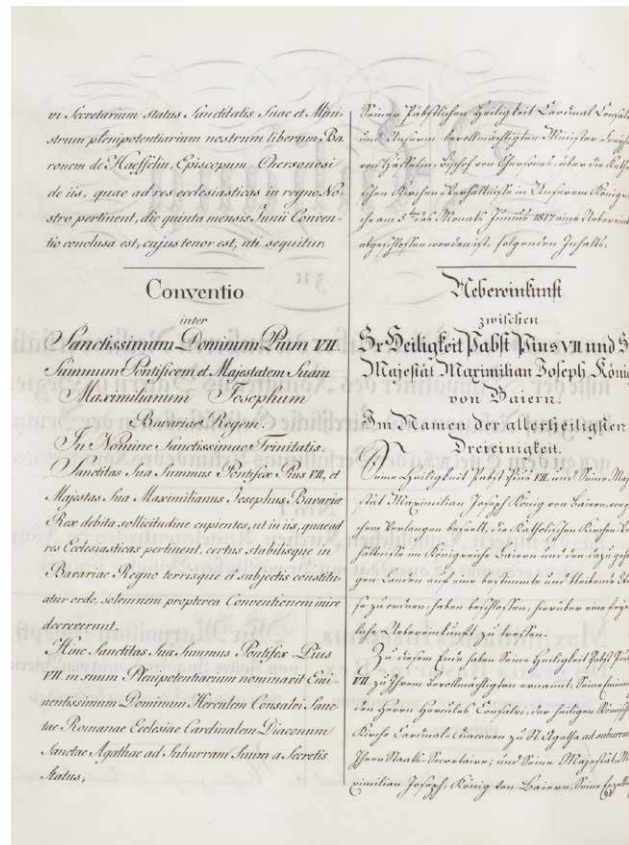 vi Secretarium Status Sanctitatis Suae et Mini-
strum plenipotentiarium nostrum liberum Ba-
ronem de Haeffelin, Episcopum Chersonesi
de iis, quae ad res ecclesiasticas in regno No-
stro pertinent, die quinta mensis Junii Conven-
tio conclusa est, cujus tenor est, uti sequitur.
Conventio
inter
Sanctissimum Dominum Pium VII.
Summum Pontificem et Majestatem Suam
Maximilianum Josephum
Bavariae Regem.
In Nomine Sanctissimae Trinitatis.
Sanctitas Sua Summus Pontifex Pius VII, et
Majestas Sua Maximilianus Josephus Bavariae
Rex debita sollicitudine cupientes, ut in iis, quae ad
res Ecclesiasticas pertinent, certus stabilisque in
Bavariae Regno terrisque ei subjectis constitu-
atur ordo, solemnem propterea Conventionem inire
decreverunt.
Hinc Sanctitas Sua Summus Pontifex Pius
VII. in suum Plenipotentiarium nominavit Emi-
nentissimum Dominum Herculem Consalvi Sanc-
tae Romanae Ecclesiae Cardinalem Diaconum
Sanctae Agathae ad Suburram Suum a Secretis
Status;
Seiner Päbstlichen Heiligkeit Cardinal Consalvi
und Unserm bevollmächtigten Minister
von Häffelin, Bischof von Chersones, über die
schen Kirchen-Verhältnisse in Unserem
am 5ten des Monats Junius 1817 eine
abgeschlossen worden ist, folgenden Inhalts.
Uebereinkunft
zwischen
Sr Heiligkeit Pabst Pius VII und S
Majestät Maximilian Joseph König
von Baiern.
Im Namen der allerheiligsten
Dreieinigkeit.
Seine Heiligkeit Pabst Pius VII. und Seine Maj
stät Maximilian Joseph König von Baiern, von
chem Verlangen beseelt, die Katholischen Kirchen-
hältnisse im Königreiche Baiern und den dazu
gen Landen auf eine bestimmte und bleibende
se zu ordnen, haben beschlossen, hierüber eine
liche Uebereinkunft zu treffen.
Zu diesem Ende haben Seine Heiligkeit Pabst Pius
VII. zu Ihrem Bevollmächtigten ernannt, Seine
den Herrn Hercules Consalvi, der heiligen
Kirche Cardinal-Diaconen zu St. Agatha ad suburram
Ihren Staats-Secretaire; und Seine Majestät
ximilian Joseph, König von Baiern, Seine